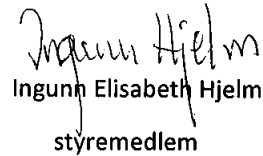 Ingunn Hjelm
Ingunn Elisabeth Hjelm
styremedlem